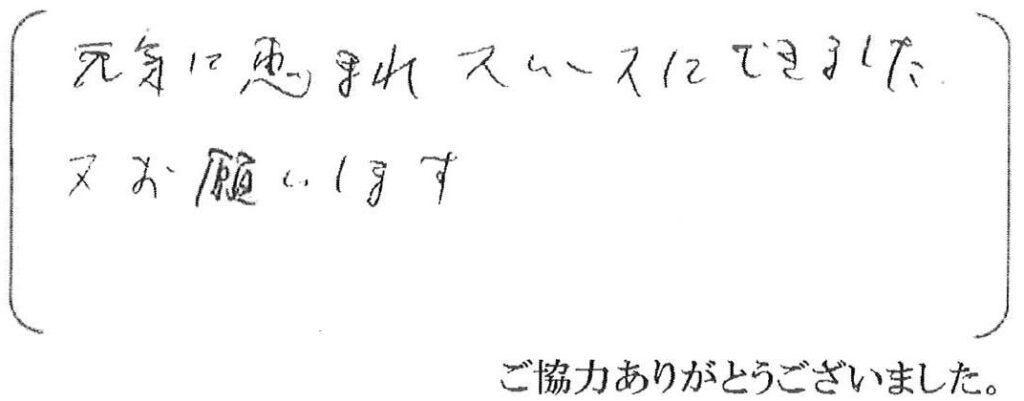 元気に恵まれスムースにできました
又お願いします
ご協力ありがとうございました。